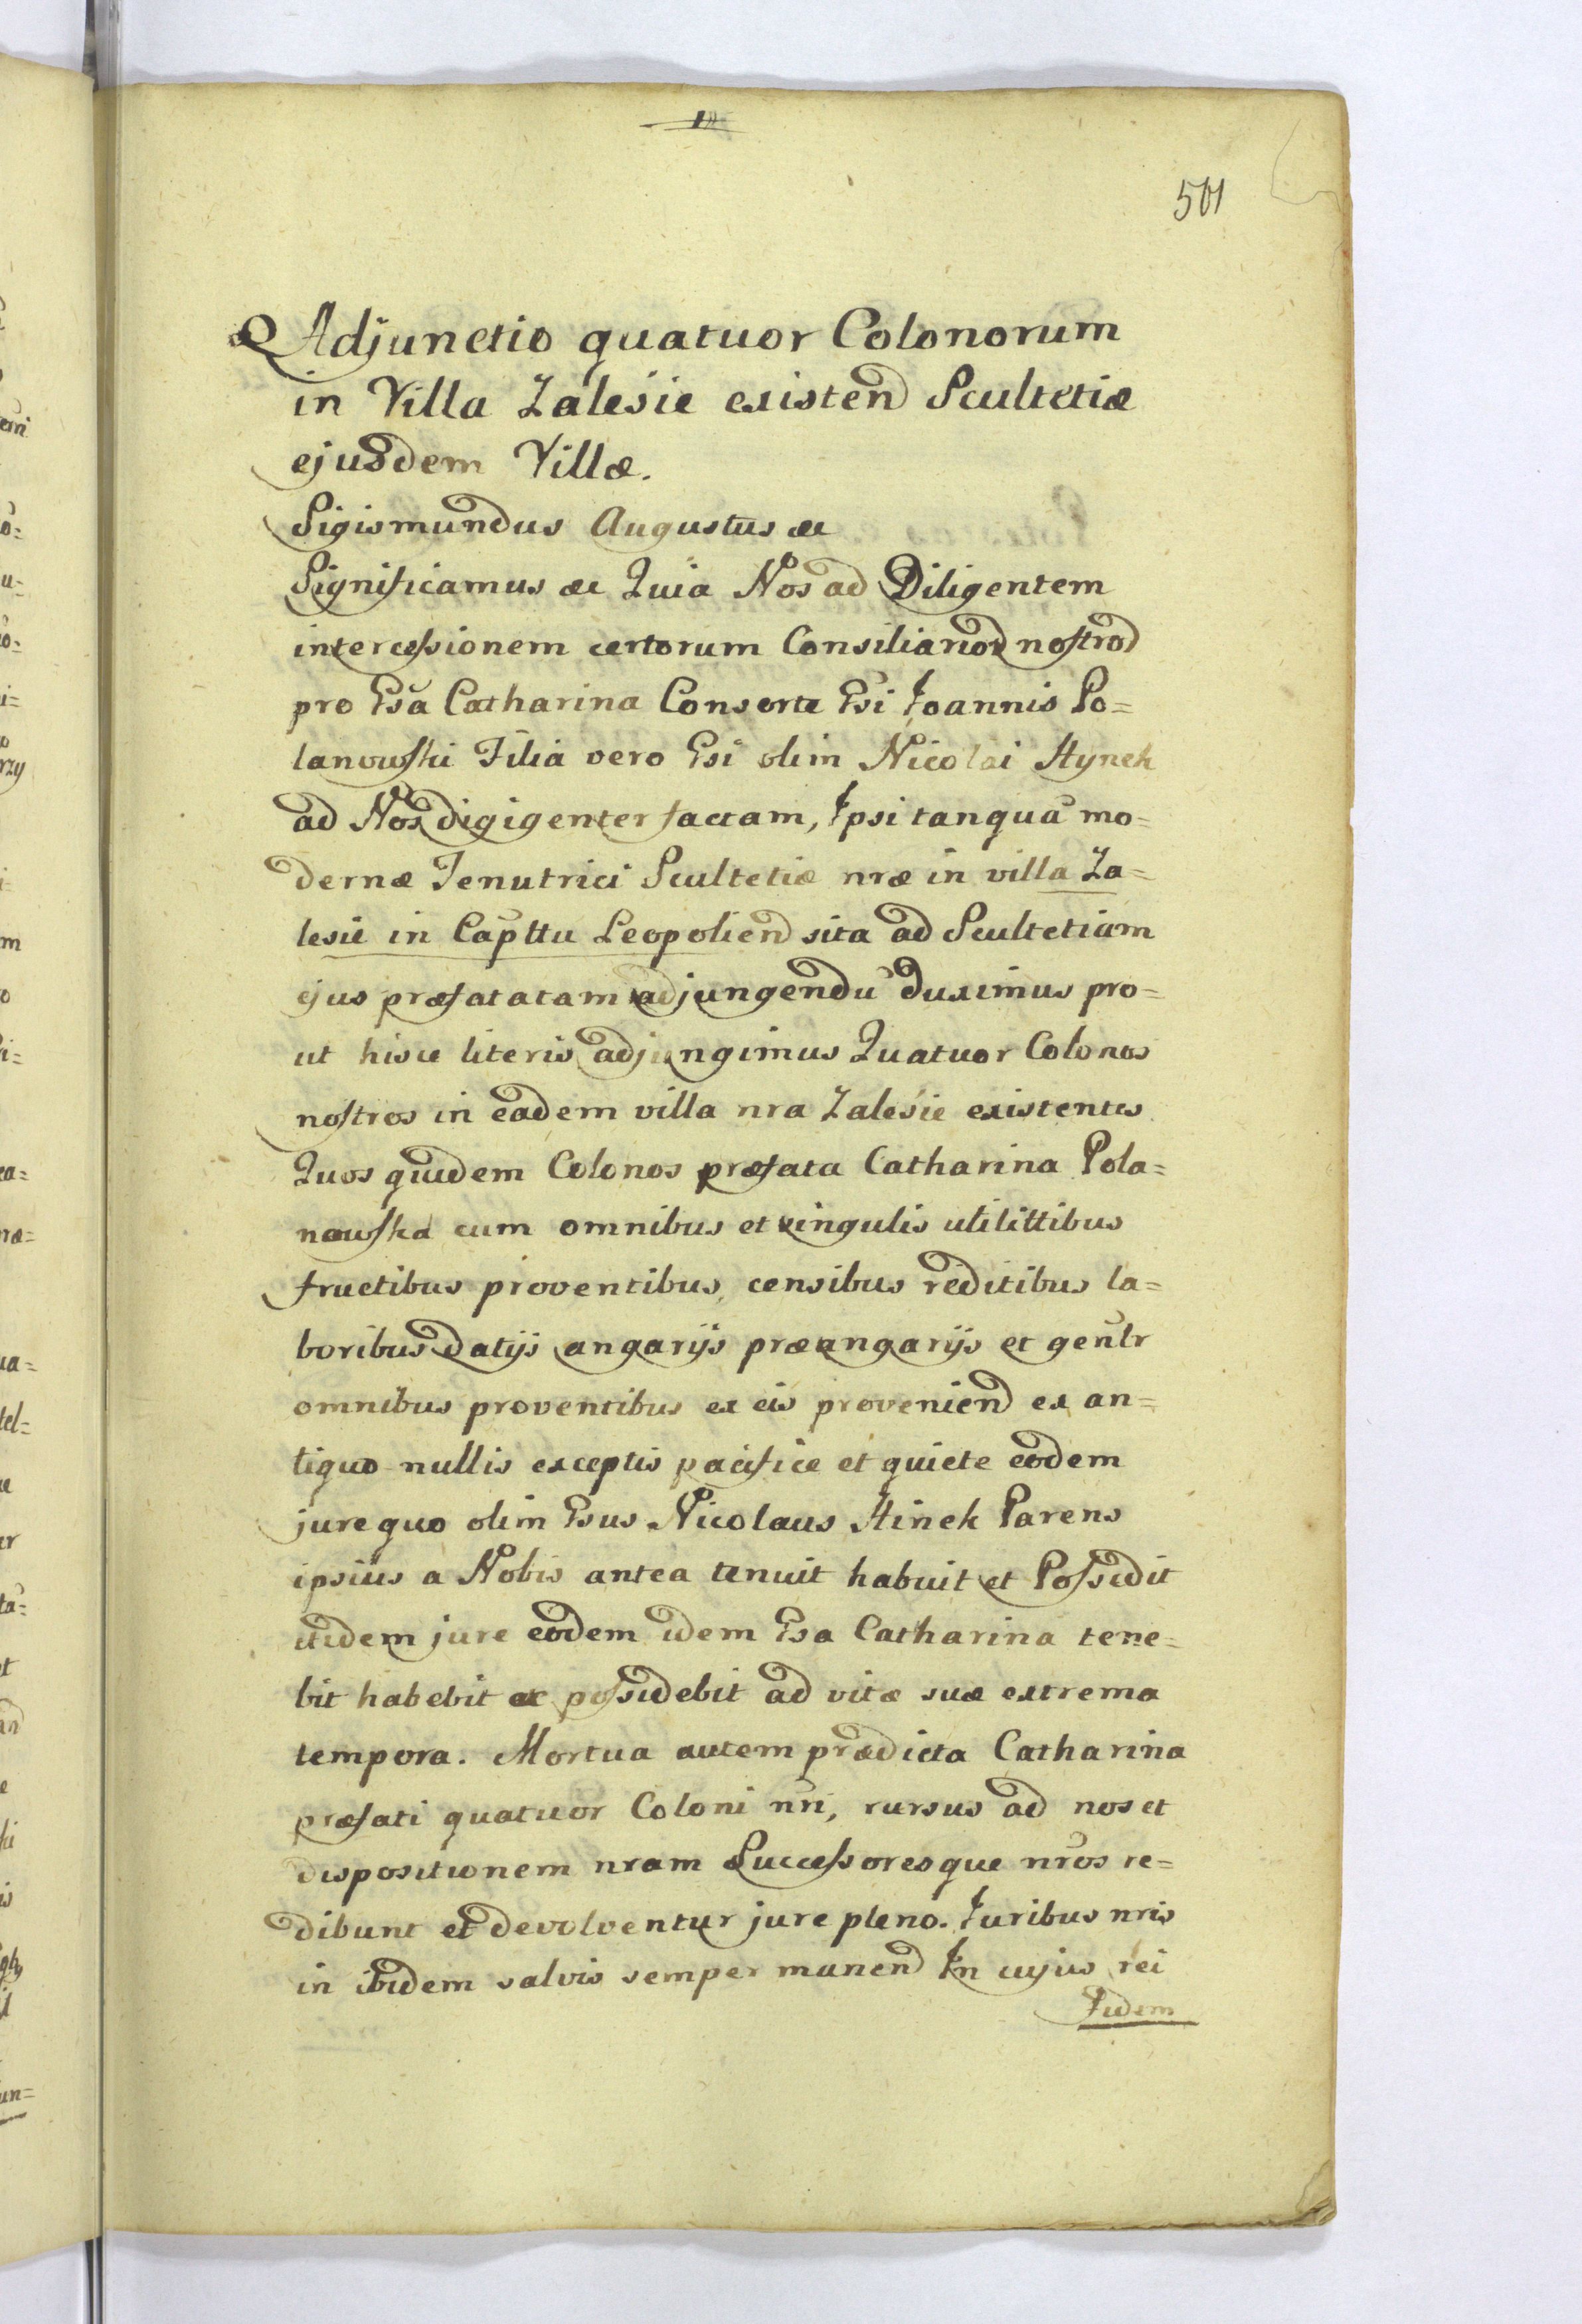 501
Adjunctio quatuor Colonorum
in Villa Zalesie existen Scultetiæ
ejusdem Villæ.
Sigismundus Augustus &c
Significamus &c Quia Nos ad Diligentem
intercessionem certorum Consiliarior nostror
pro Gsa Catharina Consorte Gsi Joannis Po=
lanowski Filia vero Gsi olim Nicolai Hynek
ad Nos digigenter factam, Ipsi tanquã mo=
dernæ Tenutrici Scultetiæ nræ in villa Za=
lesie in Capttu Leopolien sita ad Scultetiam
ejus præfatatam adjungendũ duximus pro=
ut hisce literis adjungimus Quatuor Colonos
nostros in eadem villa nra Zalesie existentes
Quos quidem Colonos præfata Catharina Pola=
nowska cum omnibus et singulis utilittibus
fructibus proventibus, censibus reditibus la=
boribus datijs angarijs præangarijs et genlr
omnibus proventibus ex eis provenien ex an=
tiquo nullis exceptis pacifice et quiete eodem
jure quo olim Gsus Nicolaus Hinek Parens
ipsius a Nobis antea tenuit habuit et Possedit
itidem jure eodem idem Gsa Catharina tene=
bit habebit et possidebit ad vitæ suæ extrema
tempora. Mortua autem prædicta Catharina
præfati quatuor Coloni nri, rursus ad nos et
dispositionem nram Successoresque nros re=
dibunt et devolventur jure pleno. Juribus nris
in ibidem salvis semper manen In cujus rei
fidem